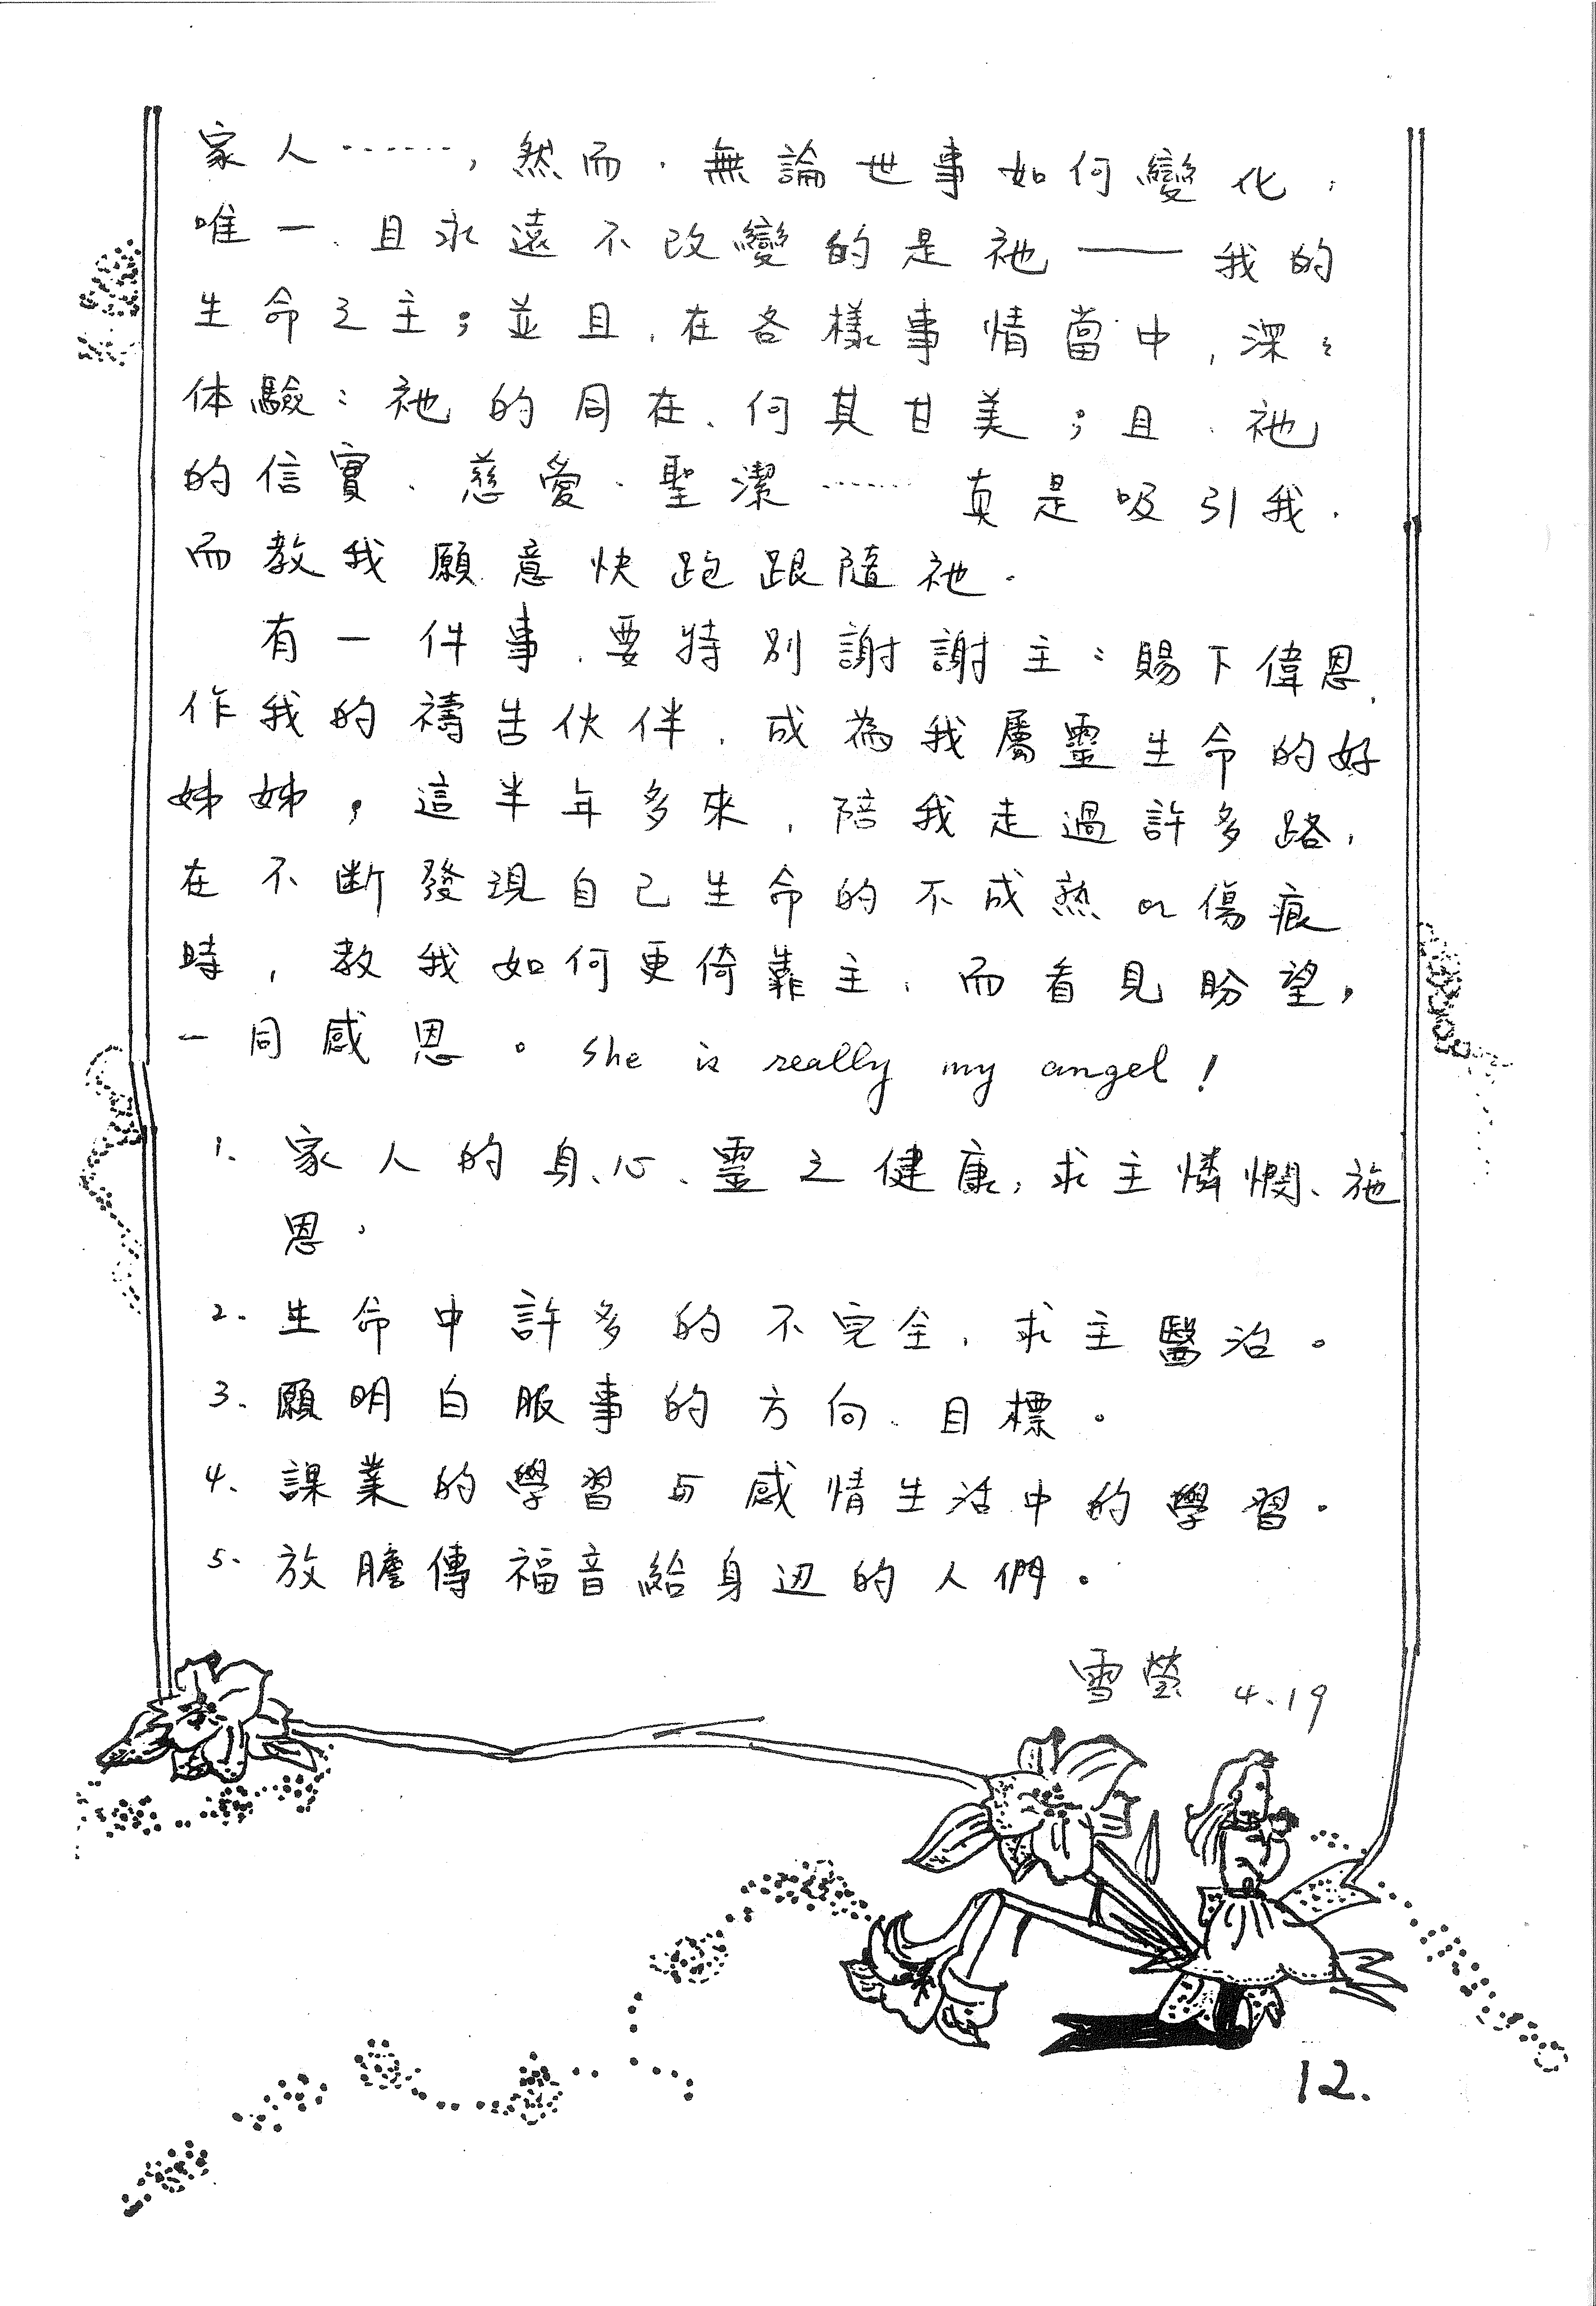 家人……,然而,無論世事如何變化,
唯一、且永遠不改變的是祂——我的
生命之主;並且,在各樣事情當中,深々
体驗:祂的同在、何其甘美;且、祂
的信實、慈愛、聖潔……真是吸引我,
而教我願意快跑跟隨祂.
有一件事、要特別謝謝主:賜下偉恩,
作我的禱告伙伴,成為我屬靈生命的好
姊姊,這半年多來,陪我走過許多路,
在不斷發現自己生命的不成熟or傷痕
時,教我如何更倚靠主,而看見盼望,
一同感恩。She is really my angel!
1、家人的身、心、靈之健康,求主憐憫、施
恩,
2、生命中許多的不完全,求主醫治。
3、願明白服事的方向、目標。
4、課業的學習与感情生活中的學習.
5、放膽傳福音給身边的人們。
雪瑩 4.19
12.